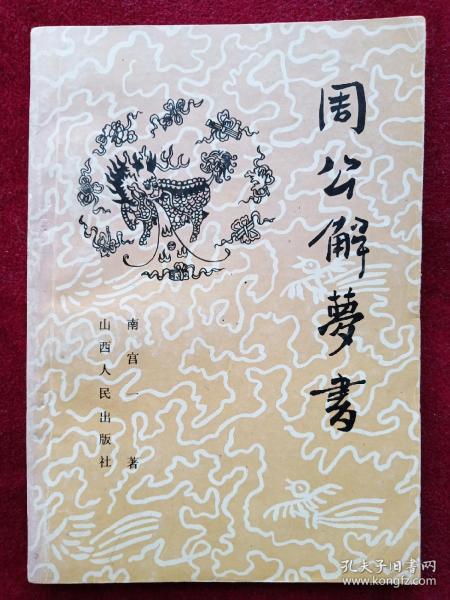 周公解夢書
南宫一 著
山西人民出版社
孔夫子旧书网
www.kongfz.com